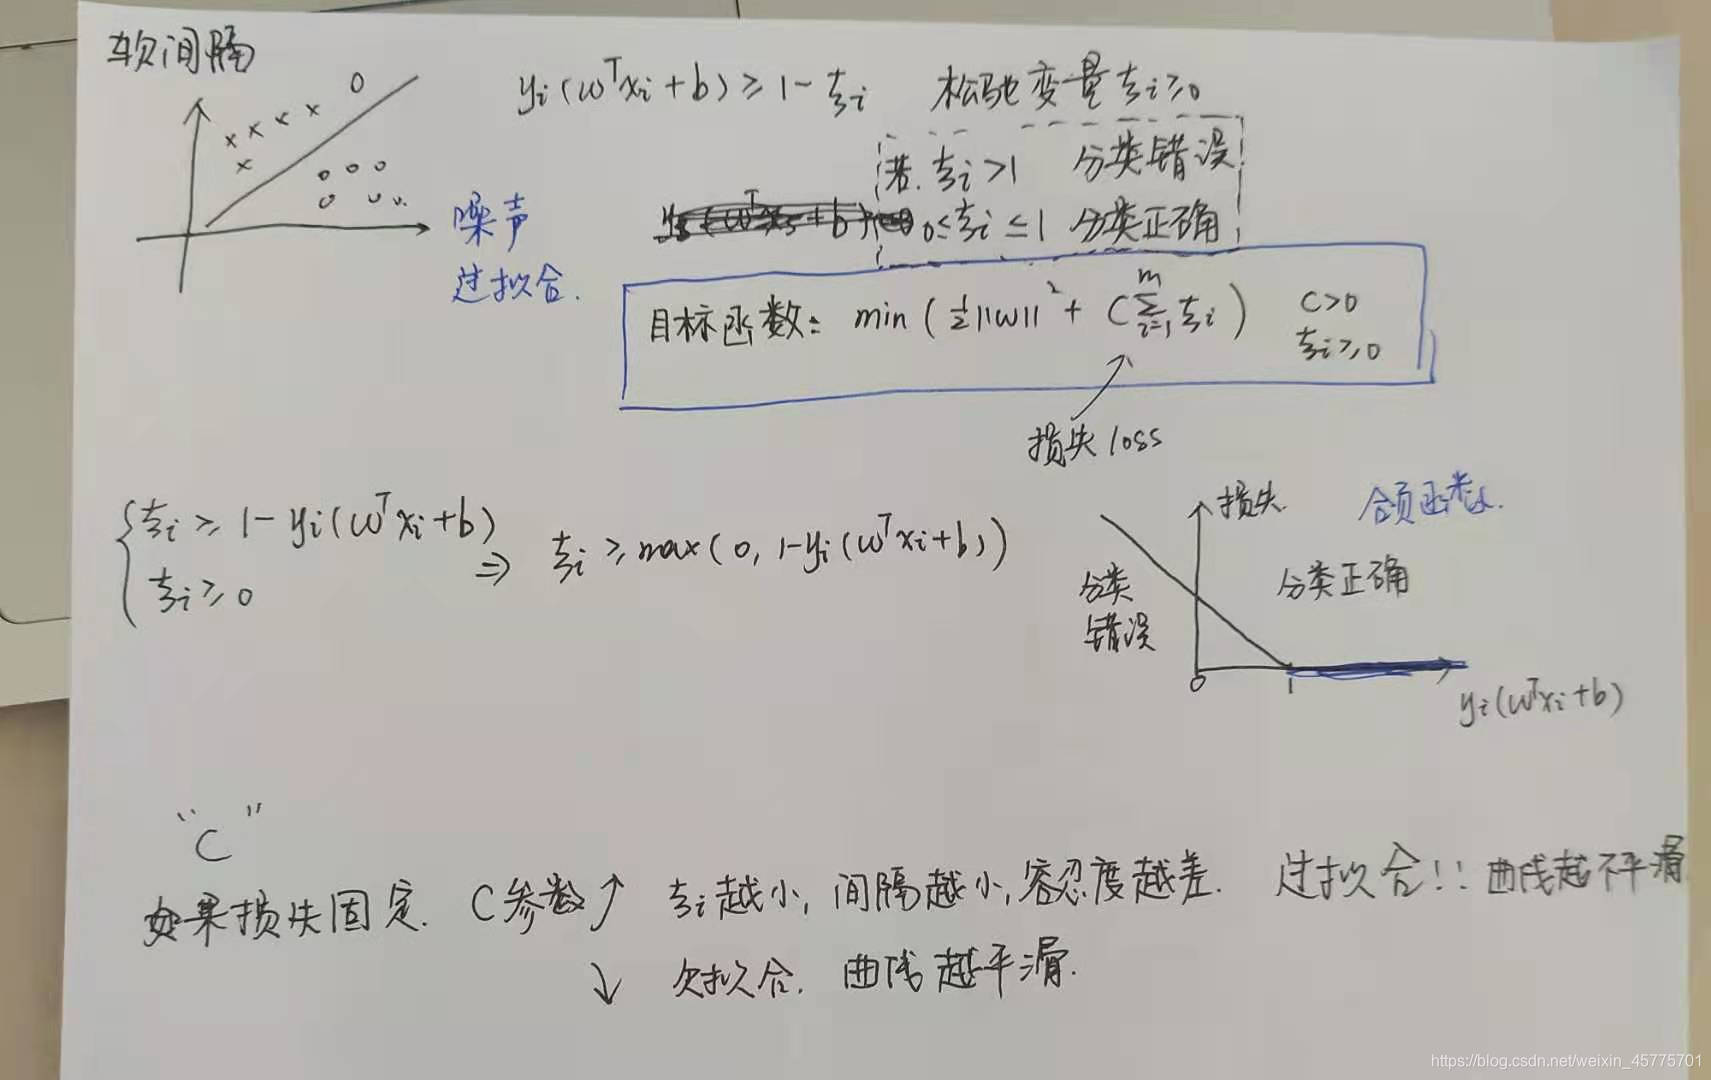 软间隔
yᵢ(ωᵀxᵢ+b) ≥ 1-ξᵢ 松驰变量 ξᵢ≥0
若 ξᵢ>1 分类错误
0≤ξᵢ≤1 分类正确
噪声
过拟合.
目标函数: min(½||ω||² + C∑ᵢ₌₁ᵐ ξᵢ) C>0
ξᵢ≥0
损失 loss
ξᵢ ≥ 1-yᵢ(ωᵀxᵢ+b)
ξᵢ≥0
⇒ ξᵢ ≥ max(0, 1-yᵢ(ωᵀxᵢ+b))
损失 合页函数.
分类错误
分类正确
0 1
yᵢ(ωᵀxᵢ+b)
"C"
如果损失固定. C参数↑ ξᵢ越小, 间隔越小, 容忍度越差. 过拟合!! 曲线越不平滑
↓ 欠拟合. 曲线越平滑.
https://blog.csdn.net/weixin_45775701